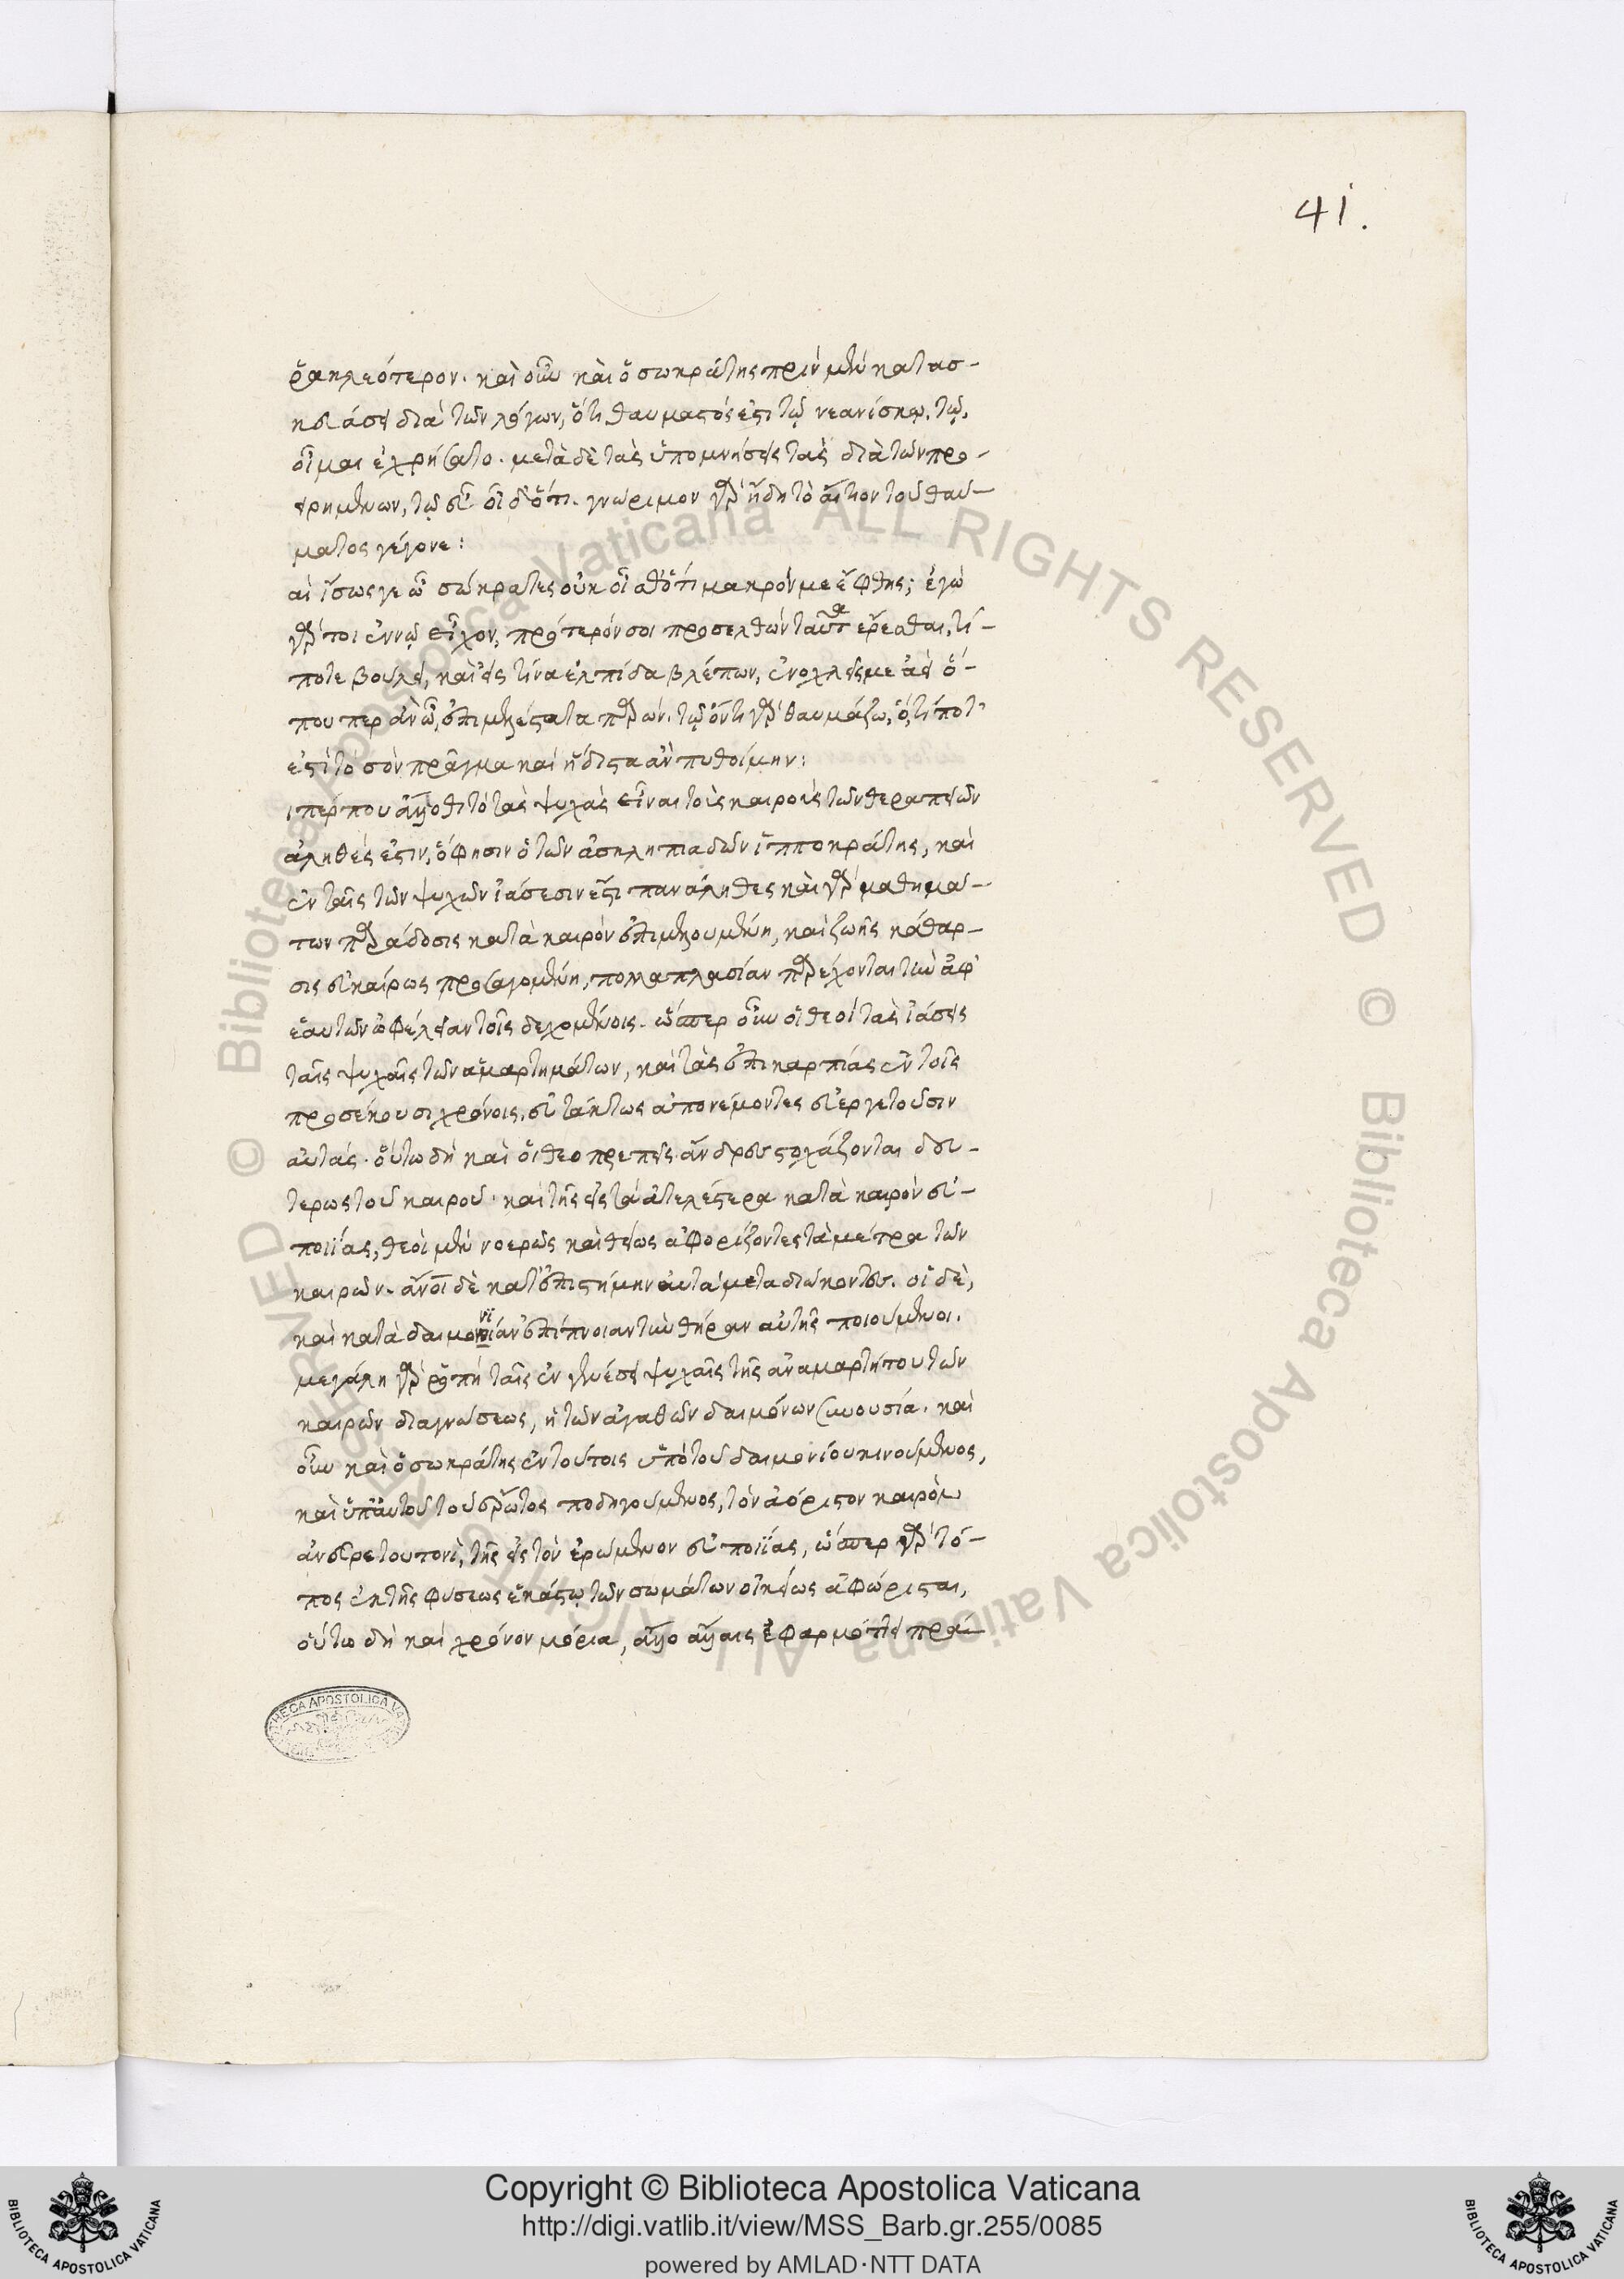 41.
ῥακλεότερον. καὶ οὖν καὶ ὁ σωκράτης πρὶν μὲν κατασ-
κευάσει διὰ τῶν λόγων, ὅτι θαυμαστός ἐστι τῷ νεανίσκῳ, τῷ,
οἶμαι ἐχρήσατο. μετὰ δὲ τὰς ὑπομνήσεις τὰς διὰ τῶν προ-
ειρημένων, τῷ εὖ οἶδ' ὅτι. γνώριμον γὰρ ἤδη τὸ αἴτιον τοῦ θαύ-
ματος γέγονε:
αὶ ἴσως γε ὦ σώκρατες οὐκ οἶσθ' ὅτι μακρόν με ἔφθης; ἐγὼ
γάρ τοι ἐν νῷ εἶχον, πρότερόν σοι προσελθὼν ταῦτα ἔρεσθαι, τί-
ποτε βούλει, καὶ εἰς τίνα ἐλπίδα βλέπων, ἐνοχλεῖς με ἀεὶ ὅ-
που περ ἂν ὦ, ἐπιμελέστατα παρών. τῷ ὄντι γὰρ θαυμάζω, ὅ,τί ποτ'
ἐστὶ τὸ σὸν πρᾶγμα καὶ ἥδιστα ἂν πυθοίμην:
ιπέρ που ἄλλοθι τὸ τὰς ψυχὰς εἶναι τοῖς καιροῖς τῶν θεραπειῶν
ἀληθές ἐστιν, ὅ φησιν ὁ τῶν ἀσκληπιαδῶν ἱπποκράτης, καὶ
ἐν ταῖς τῶν ψυχῶν ἰάσεσιν ἔστι παναληθες καὶ γὰρ μαθημά-
των παράδοσις κατὰ καιρὸν ἐπιμελουμένη, καὶ ζωῆς κάθαρ-
σις εὐκαίρως προσαγομένη, πολλαπλασίαν παρέχονται τὴν ἀφ'
ἑαυτῶν ὠφέλειαν τοῖς δεχομένοις. ὥσπερ οὖν οἱ θεοὶ τὰς ἰάσεις
ταῖς ψυχαῖς τῶν ἁμαρτημάτων, καὶ τὰς ἐπικαρπίας ἐν τοῖς
προσήκουσι χρόνοις, εὐτάκτως ἀπονέμοντες εὐεργετοῦσιν
αὐτάς. οὕτω δὴ καὶ οἱ θεοπρεπεῖς ἄνδρες στοχάζονται δευ-
τέρως τοῦ καιροῦ. καὶ τῆς εἰς τὰ ἀτελέστερα κατὰ καιρὸν εὐ-
ποιίας, θεοὶ μὲν νοερῶς καὶ θείως ἀφορίζοντες τὰ μέτρα τῶν
καιρῶν. ἄνοι δὲ κατ' ἐπιστήμην αὐτὰ μεταδιώκοντες. οἱ δὲ,
καὶ κατὰ δαιμονίαν ἐπίπνοιαν τὴν θήραν αὐτῆς ποιούμενοι.
μεγάλη γὰρ ῥοπὴ ταῖς ἐν γενέσει ψυχαῖς τῆς ἀναμαρτήτου τῶν
καιρῶν διαγνώσεως, ἡ τῶν ἀγαθῶν δαιμόνων συνουσία. καὶ
οὖν καὶ ὁ σωκράτης ἐν τούτοις ὑπὸ τοῦ δαιμονίου κινούμενος,
καὶ ὑπ' αὐτοῦ τοῦ ἔρωτος ποδηγούμενος, τὸν ἀόριστον καιρὸν
ἀνεῦρε τουτονὶ, τῆς εἰς τὸν ἐρώμενον εὐποιίας, ὥσπερ γὰρ τό-
πος ἐκ τῆς φύσεως ἑκάστῳ τῶν σωμάτων οἰκείως ἀφώρισται,
οὕτω δὴ καὶ χρόνον μόρια, ἄλλο ἄλλαις ἐφαρμόττει πρά-
Copyright © Biblioteca Apostolica Vaticana
http://digi.vatlib.it/view/MSS_Barb.gr.255/0085
powered by AMLAD·NTT DATA